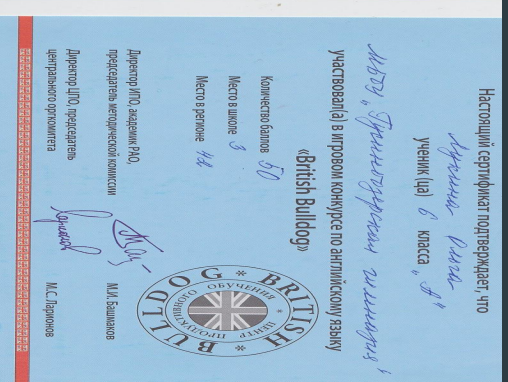 Настоящий сертификат подтверждает, что
ученик (ца) 6 класса „А"
МБОУ „ гимназия"
участвовал(а) в игровом конкурсе по английскому языку
«British Bulldog»
Количество баллов 50
Место в школе 3
Место в регионе
Директор ИПО, академик РАО,
председатель методической комиссии
М.И. Башмаков
Директор ЦПО, председатель
центрального оргкомитета
М.С. Ларионов
BRITISH * BULLDOG *
ЦЕНТР ПРОДУКТИВНОГО ОБУЧЕНИЯ